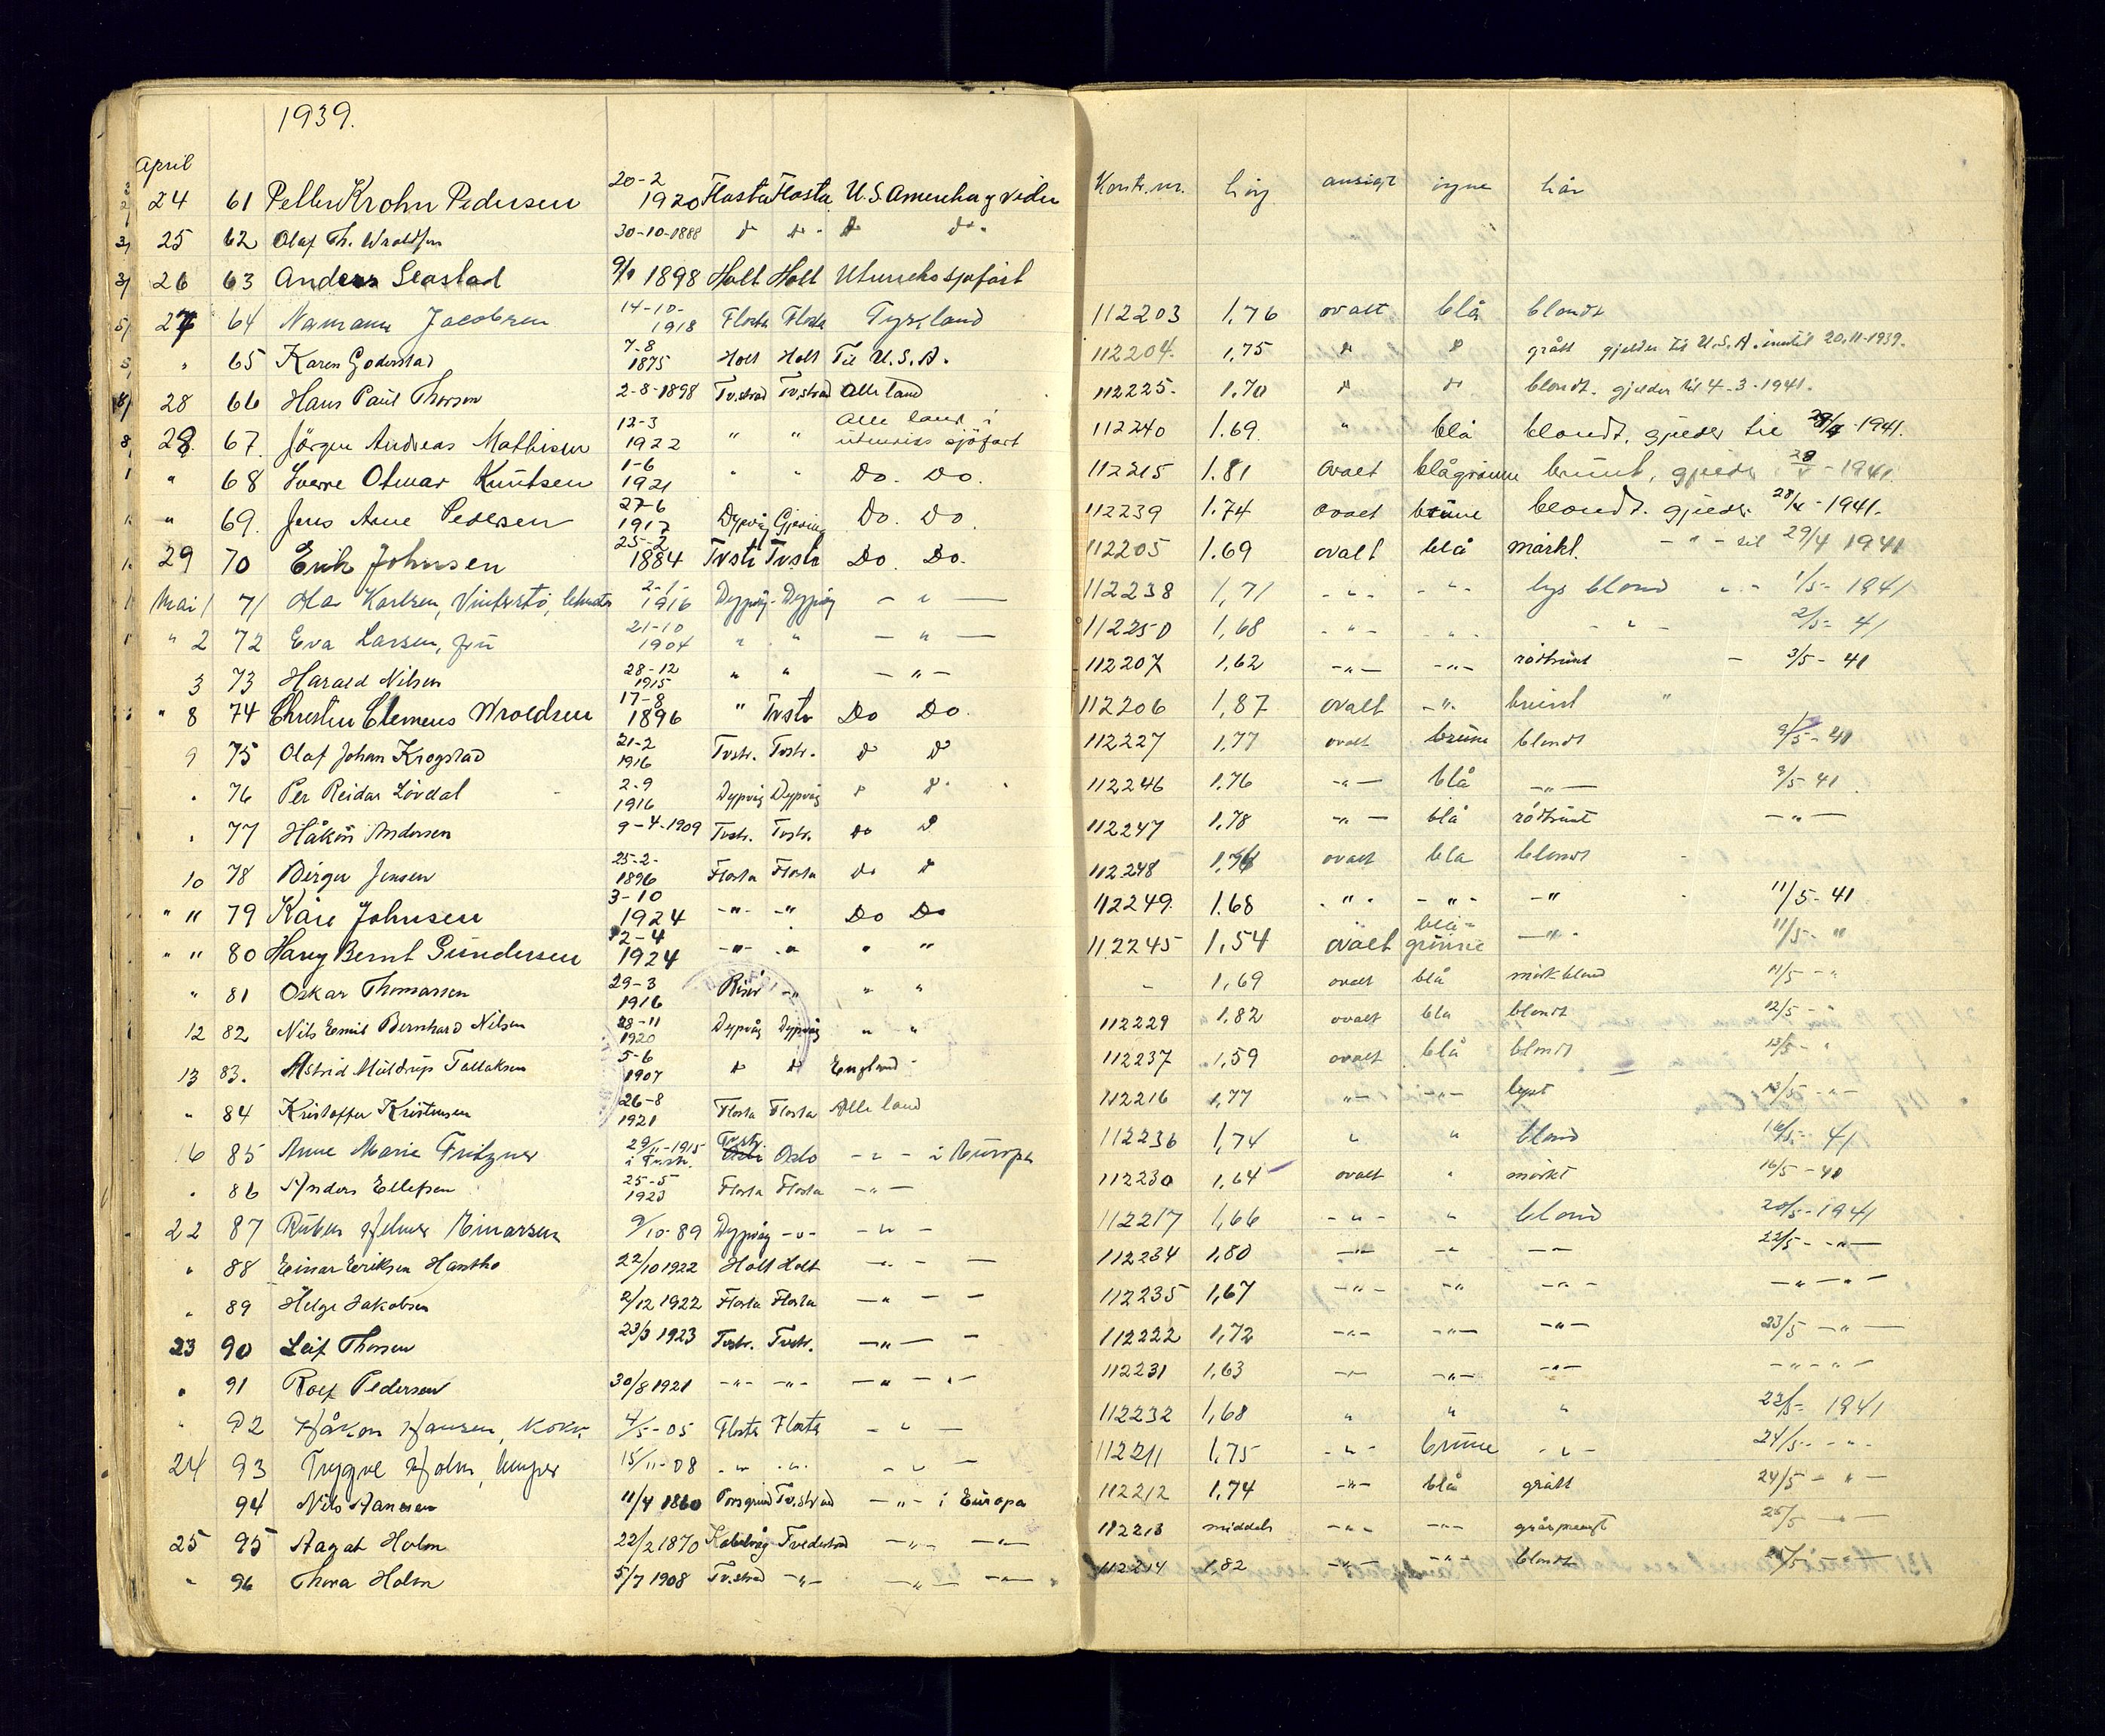 1939.
April
24 61 Petter Krohn Pedersen 20-2 1920 Flosta Flosta U.S. Amerika g viden
25 62 Olaf Th. Wroldsen 30-10-1888 do do do do
26 63 Anders Seastad 1898 Holt Holt Utenriks sjøfart
27 64 Normann Jacobsen 14-10-1918 Flosta Flosta Tyskland
" 65 Karen Goderstad 7-8 1875 Holt Holt Til U.S.A.
28 66 Hans Paul Thorson 2-8-1898 Tv.strad Tv.strad Alle land
28. 67. Jörgen Andreas Mathisen 12-3 1922 " " Alle land i utenriks sjöfart
" 68 Sverre Otmar Knutsen 1-6 1921 " " Do. Do.
" 69. Jens Arne Pedersen 27-6 1917 Dypvåg Do. Do.
29 70 Erik Johnsen 25-2 1884 Tvstr Tvstr Do. Do.
Mai 1 71 Olav Karlsen, 2-1- 1916 Dypvåg - Dypvåg — " —
" 2 72 Eva Larsen, frü 21-10 1904 " " — " —
3 73 Harald Nilsen 28-12 1915 " " — " —
" 8 74 Christen Clemens Wroldsen 17-8 1896 " Tvstr Do Do.
9 75 Olaf Johan Krogstad 21-2 1916 Tvstr. Tvstr. do do
" 76 Per Reidar Lövdal 2-9 1916 Dypvåg Dypvåg do do
" 77 Håkon Andersen 9-4-1909 Tvstr. Tvstr. do do
10 78 Birger Jensen 25-2- 1896 Flosta Flosta do do
" 11 79 Kåre Johnsen 3-10 1924 -"- -" Do Do
" 11 80 Harry Bernt Gundersen 12-4 1924 -"- " " "
" 81 Oskar Thomassen 29-3 1916 Risör -"- " "
12 82 Nils Emil Bernhard Nilsen 28-11 1920 Dypvåg Dypvåg " "
13 83. Astrid Muldrup Tallaksen 5-6 1907 do do England
" 84 Kristoffer Kristensen 26-8 1921 Flosta Flosta Alle land
16 85 Anne Marie Fritzner 29/11-1915 i Tvstr. Tvstr. Oslo -"- i Europa
" 86 Anders Ellefsen 25-5 1923 Flosta Flosta -"-
22 87 Ruben Helmer Einarsen 9/10-89 Dypvåg -"- -"-
" 88 Einar Eriksen Hantho 22/10 1922 Holt Holt -"- —
" 89 Helge Jakobsen 2/12 1922 Flosta Flosta -"- -
23 90 Leif Thorsen 23/3 1923 Tvstr. Tvstr. -"- -
" 91 Rolf Pedersen 30/8 1921 -"- -"- -"- -"-
" 92 Håkon Hansen, kokk 4/5-05 Flosta Flosta -"-
24 93 Trygve Holm, 15/11-08 -"- -"- -"-
94 Nils Hansen 11/4 1860 Porsgrund Tv.strad -"- i Europa
25 95 Aagat Holm 22/2 1870 Kalvåg Tvedestrad -"- -"-
" 96 Thora Holm 5/7 1908 Tv.strad -"- -"- -"-
Kontr. nr. höy ansigt öyne hår
112203 1,76 ovalt blå blondt
112204. 1,75 do do grått gjelder til U.S.A. inntil 20.11-1939.
112225. 1.70 do do blondt. gjelder til 4-3-1941.
112240 1.69. " blå blondt, gjelder til 28/4-1941.
112215 1.81 ovalt blågrönne brunt, gjelder 28/4-1941.
112239 1.74 ovalt brune blondt. gjelder 28/4-1941.
112205 1.69 ovalt blå mörkt. - " - til 29/4 1941
112238 1,71 -"- -"- lys blond "- 1/5-1941
112250 1,68 -"- -"- -"- 2/5- 41
112207 1,62 -"- -"- rödbrunt - 3/5-41
112206 1,87 ovalt -"- brunt "
112227 1,77 ovalt brune blondt 9/5-41
112246 1,76 -"- blå -"- 9/5-41
112247 1,78 -"- blå rödbrunt -"-
112248 ovalt blå blondt
112249. 1.68 -"- -"- -" 11/5-41
112245 1,54 ovalt blågrönne -"- 11/5-"
- 1,69 ovalt blå mörkblond 11/5-"
112229 1,82 ovalt blå blondt 12/5-"
112237 1,59 ovalt blå blondt 13/5-"
112216 1,77 -"- -"- lyst 13/5-"-
112236 1,74 " " blond 16/5- 41
112230 1,64 ovalt " mörkt 16/5-41
112217 1,66 -"- " blond 20/5-1941
112234 1,80 -"- -"- -"- 22/5-"-
112235 1,67 -"- -"- -"- -"-"-
112222 1,72 -"- -"- -"- 23/5-"-
112231 1,63 -"- -"- -"- -"-"-
112232 1,68 " " " 23/5- 1941
112211 1,75 -"- brune -"- 24/5-"-
112212 1,74 -"- blå grått 24/5-"-
112213 middels -"- -"- gråsprengt 25/5 -"-
112214 1,82 -"- -"- blondt 25/5-"-